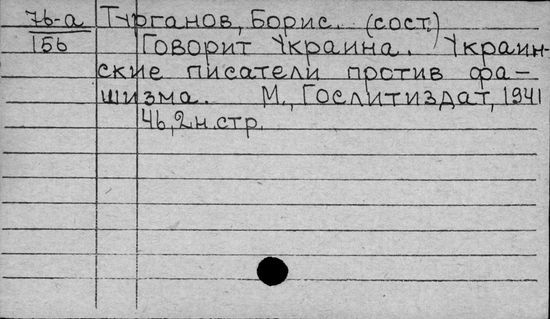 76-а Турганов, Борис. (сост.)
156 Говорит Украина. Украин-
ские писатели против фа-
шизма. М., Гослитиздат, 1941
46, 2 н. стр.